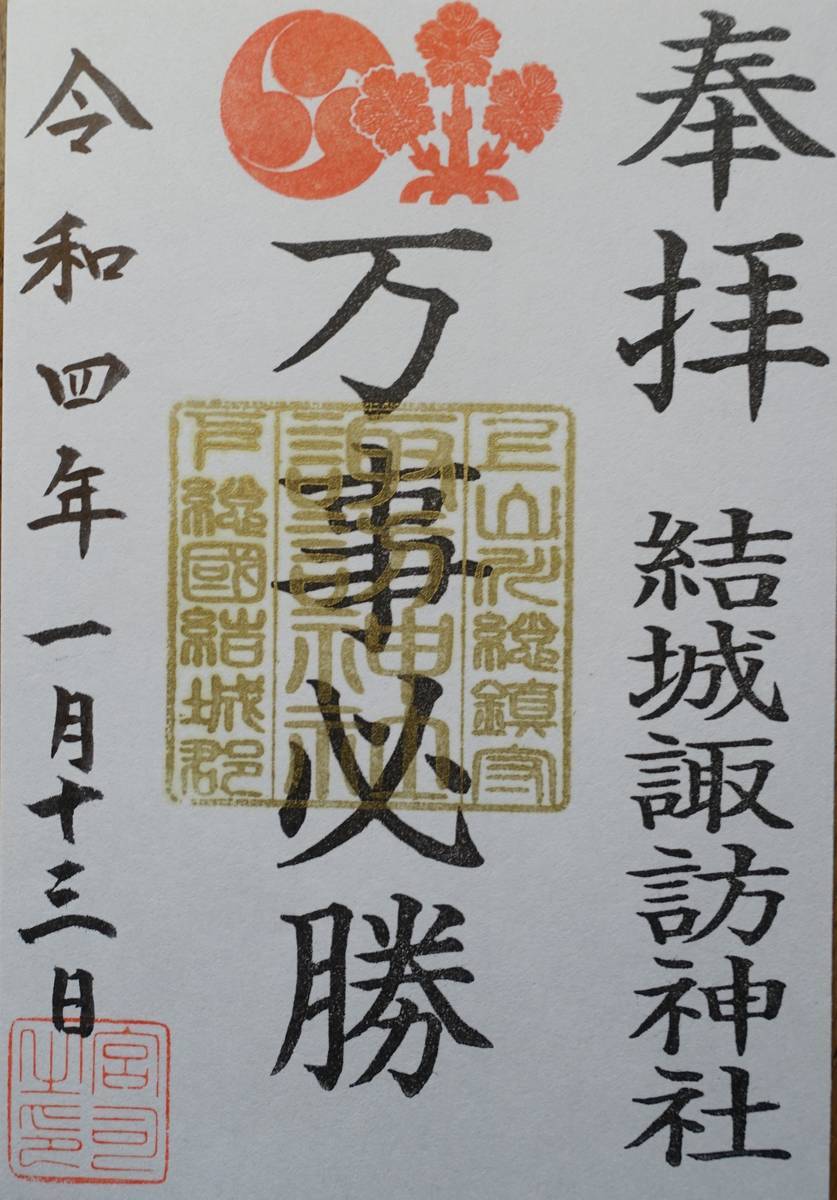 奉拝 結城諏訪神社
万事必勝
総鎮守
諏訪神社
下総國結城郡
令和四年一月十三日
宮司之印